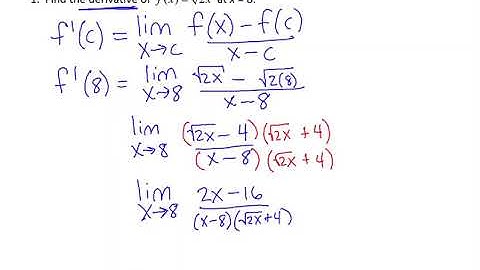 1. Find the derivative of f(x) = √2x at x = 8.
f'(c) = lim x→c f(x) - f(c) / x - c
f'(8) = lim x→8 √2x - √2(8) / x - 8
lim x→8 (√2x - 4) (√2x + 4) / (x - 8) (√2x + 4)
lim x→8 2x - 16 / (x-8)(√2x+4)